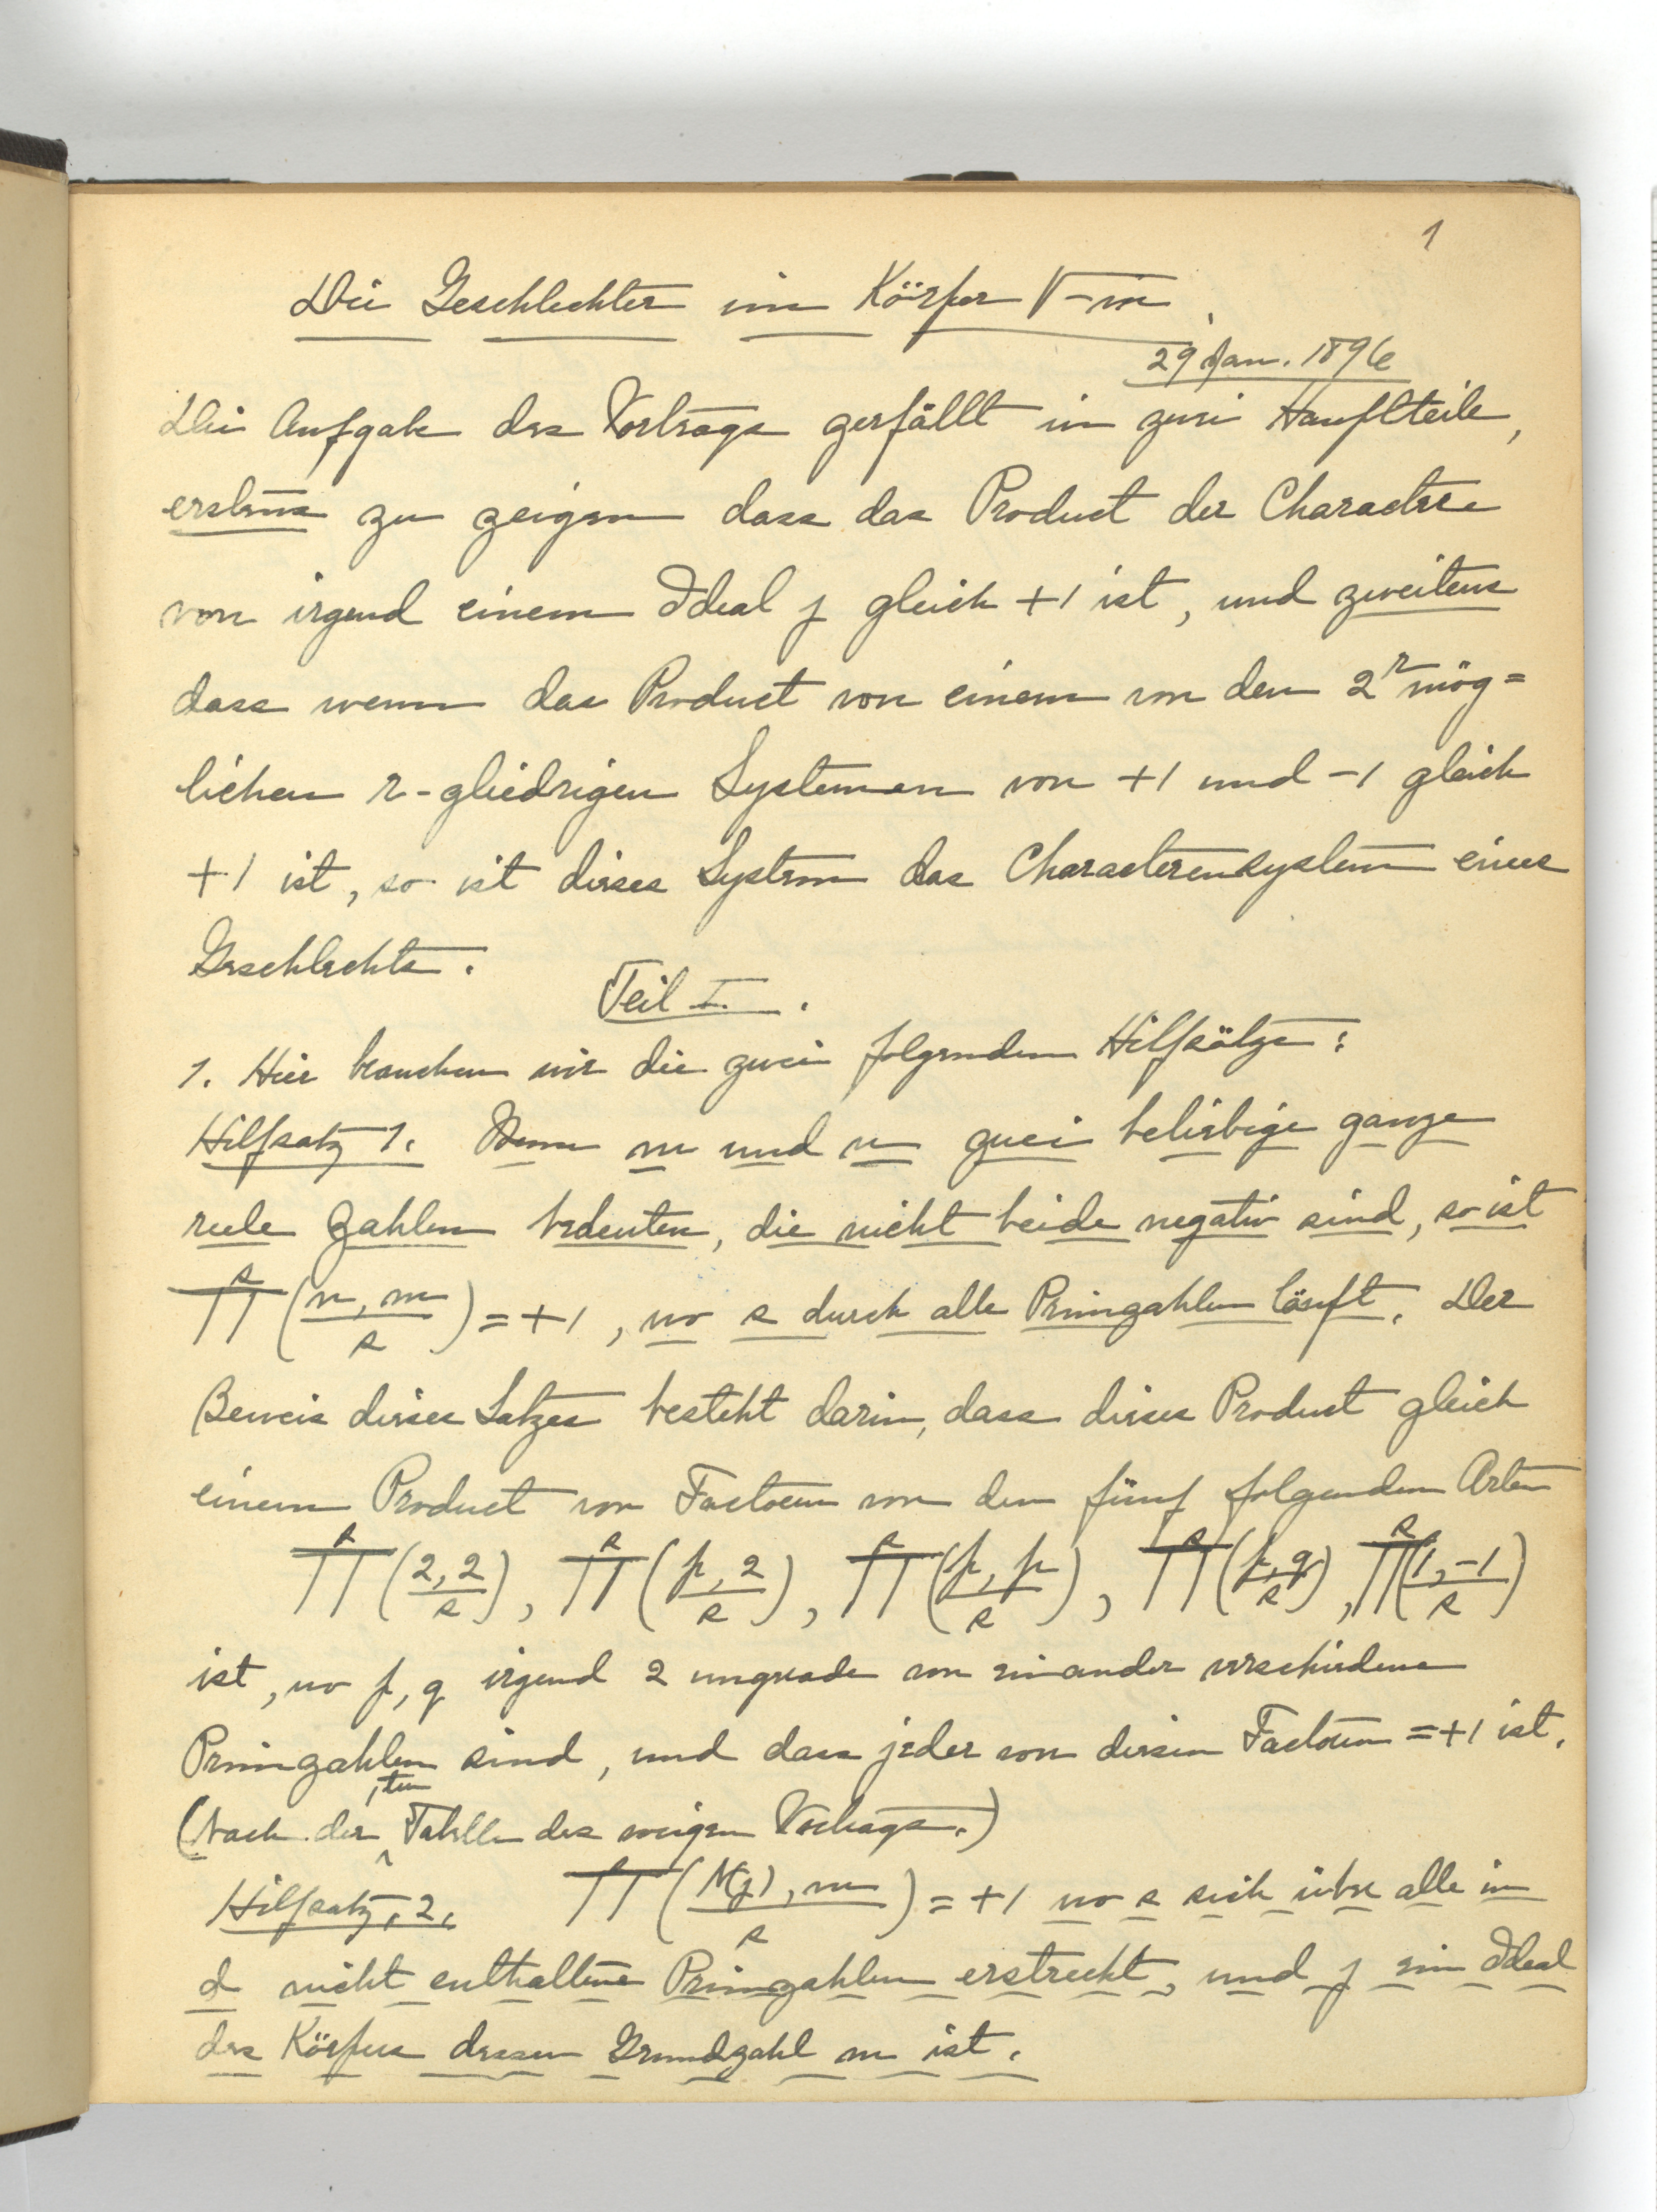 1
Die Geschlechter im Körper √-m.
29 Jan. 1896
Die Aufgabe des Vortrags zerfällt in zwei Hauptteile,
erstens zu zeigen dass das Product der Charactere
von irgend einem Ideal j gleich +1 ist, und zweitens
dass wenn das Product von einem von den 2^r mög=
lichen r-gliedrigen Systemen von +1 und -1 gleich
+1 ist, so ist dieses System das Characterensystem eines
Geschlechts.
Teil I.
1. Hier brauchen wir die zwei folgenden Hilfsätze:
Hilfsatz 1. Wenn m und n zwei beliebige ganze
reele Zahlen bedeuten, die nicht beide negativ sind, so ist
∏^s (n, m / s) = +1, wo s durch alle Primzahlen läuft. Der
Beweis dieses Satzes besteht darin, dass dieses Product gleich
einem Product von Factoren von den fünf folgenden Arten
∏^s (2, 2 / s), ∏^s (p, 2 / s), ∏^s (p, p / s), ∏^s (p, q / s), ∏^s (1, -1 / s)
ist, wo p, q irgend 2 ungrade von einander verschiedene
Primzahlen sind, und dass jeder von diesen Factoren = +1 ist.
(Nach der 1ten Tabelle des vorigen Vortrags.)
Hilfsatz 2. ∏^s (N(j), m / s) = +1 wo s sich über alle in
d nicht enthaltene Primzahlen erstreckt, und j ein Ideal
des Körpers dessen Grundzahl m ist.